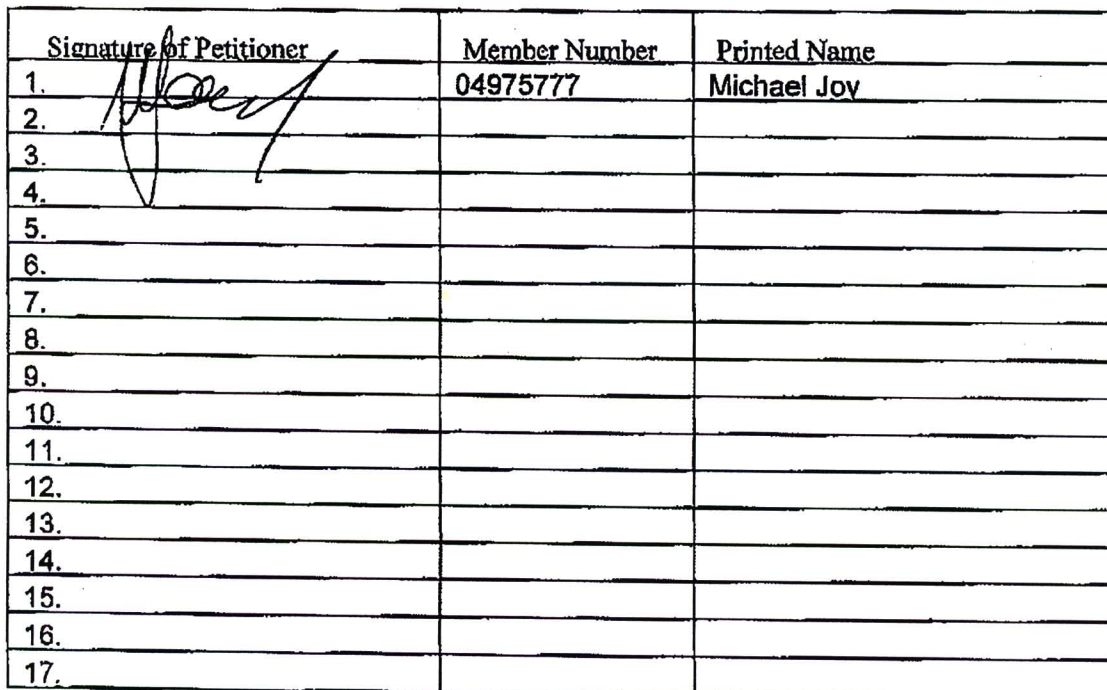 Signature of Petitioner Member Number Printed Name
1. 04975777 Michael Joy
2.
3.
4.
5.
6.
7.
8.
9.
10.
11.
12.
13.
14.
15.
16.
17.